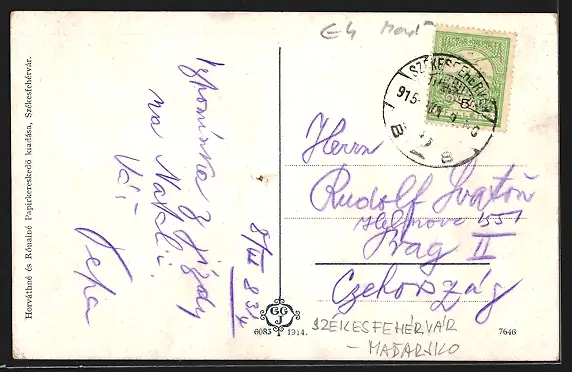 Horváthné és Rónainé Papirkereskedő kiadása, Székesfehérvár.
Vzpomínka z jízdy
na
Váš
Pepa
SZÉKESFEHÉRVÁR
915
B
B
Herrn
Rudolf Svatoň
1551
Prag II
Czekország
GG
J
6085 1914.
7646
SZÉKESFEHÉRVÁR
- MAĎARSKO